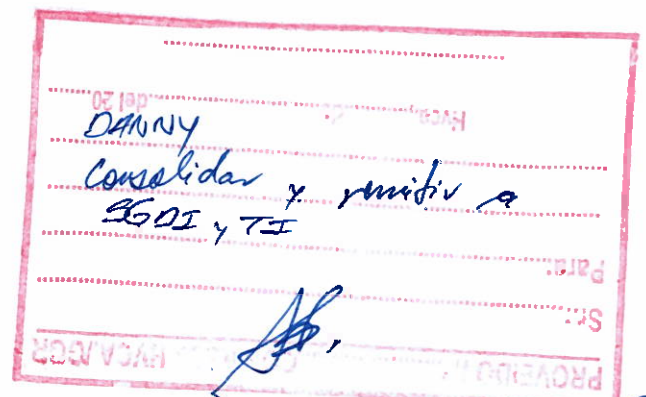 DANNY
Consolidar y remitir a
SGDI y TI
PROVEIDO N°
HVCA/GGR
Sr.:
Para:
Hvca, del 20